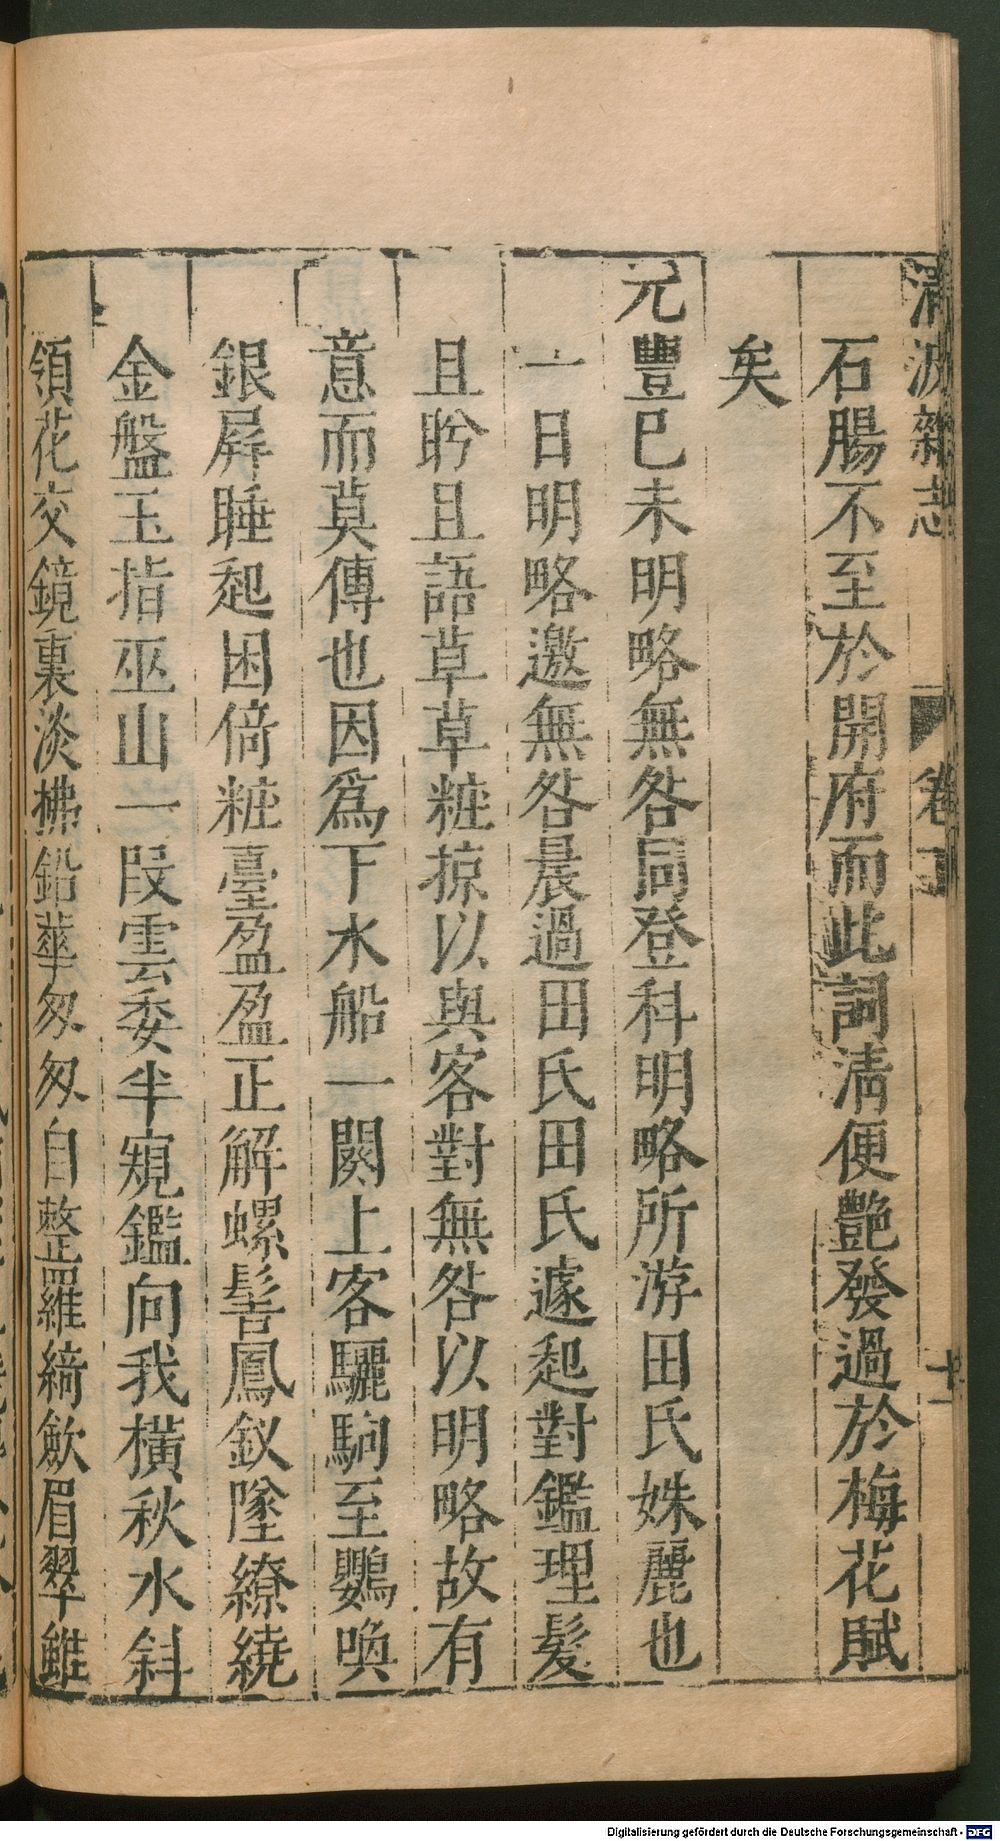 清波雜志
卷
十
石腸不至於開府而此詞清便艷發過於梅花賦
矣
元豐己未明略無咎同登科明略所游田氏姝麗也
一日明略邀無咎晨過田氏田氏遽起對鑑理髮
且盻且語草草粧掠以與客對無咎以明略故有
意而莫傳也因爲下水船一闋上客驪駒至鸚喚
銀屏睡起困倚粧臺盈盈正解螺髻鳳釵墜繚繞
金盤玉指巫山一段雲委半窺鑑向我橫秋水斜
領花交鏡裏淡拂鉛華匆匆自整羅綺歛眉翠雖
Digitalisierung gefördert durch die Deutsche Forschungsgemeinschaft - DFG